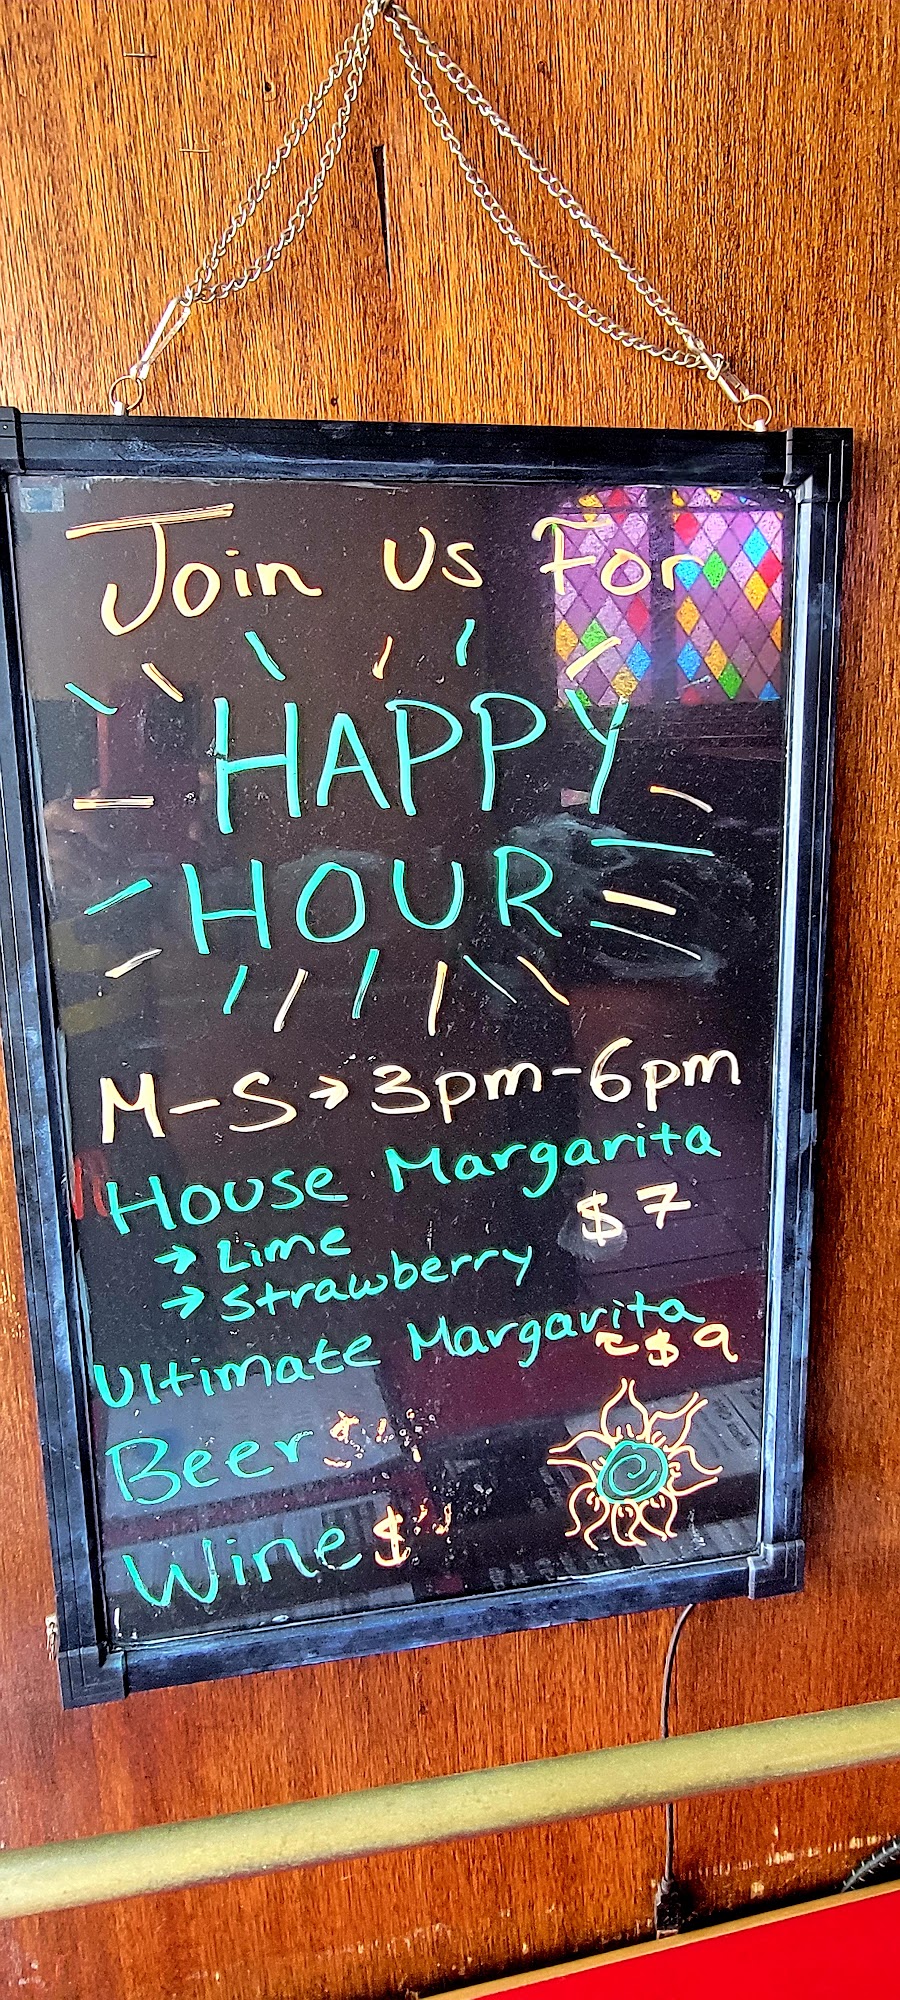 Join Us For
HAPPY
HOUR
M-S→3pm-6pm
House Margarita
$7
→ Lime
→ Strawberry
Ultimate Margarita
$9
Beer $
Wine $